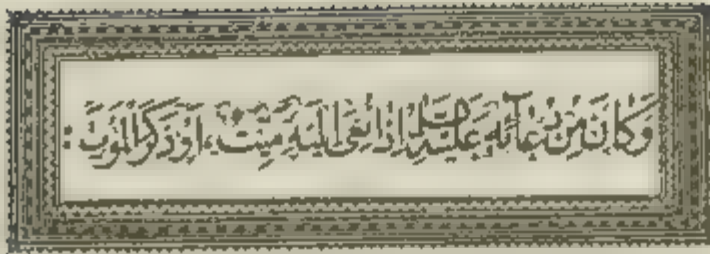 وَكَانَ مِنْ دُعَائِهِ عَلَيْهِ السَّلَامُ إِذَا نُعِيَ إِلَيْهِ مَيِّتٌ، أَوْ ذَكَرَ الْمَوْتَ: